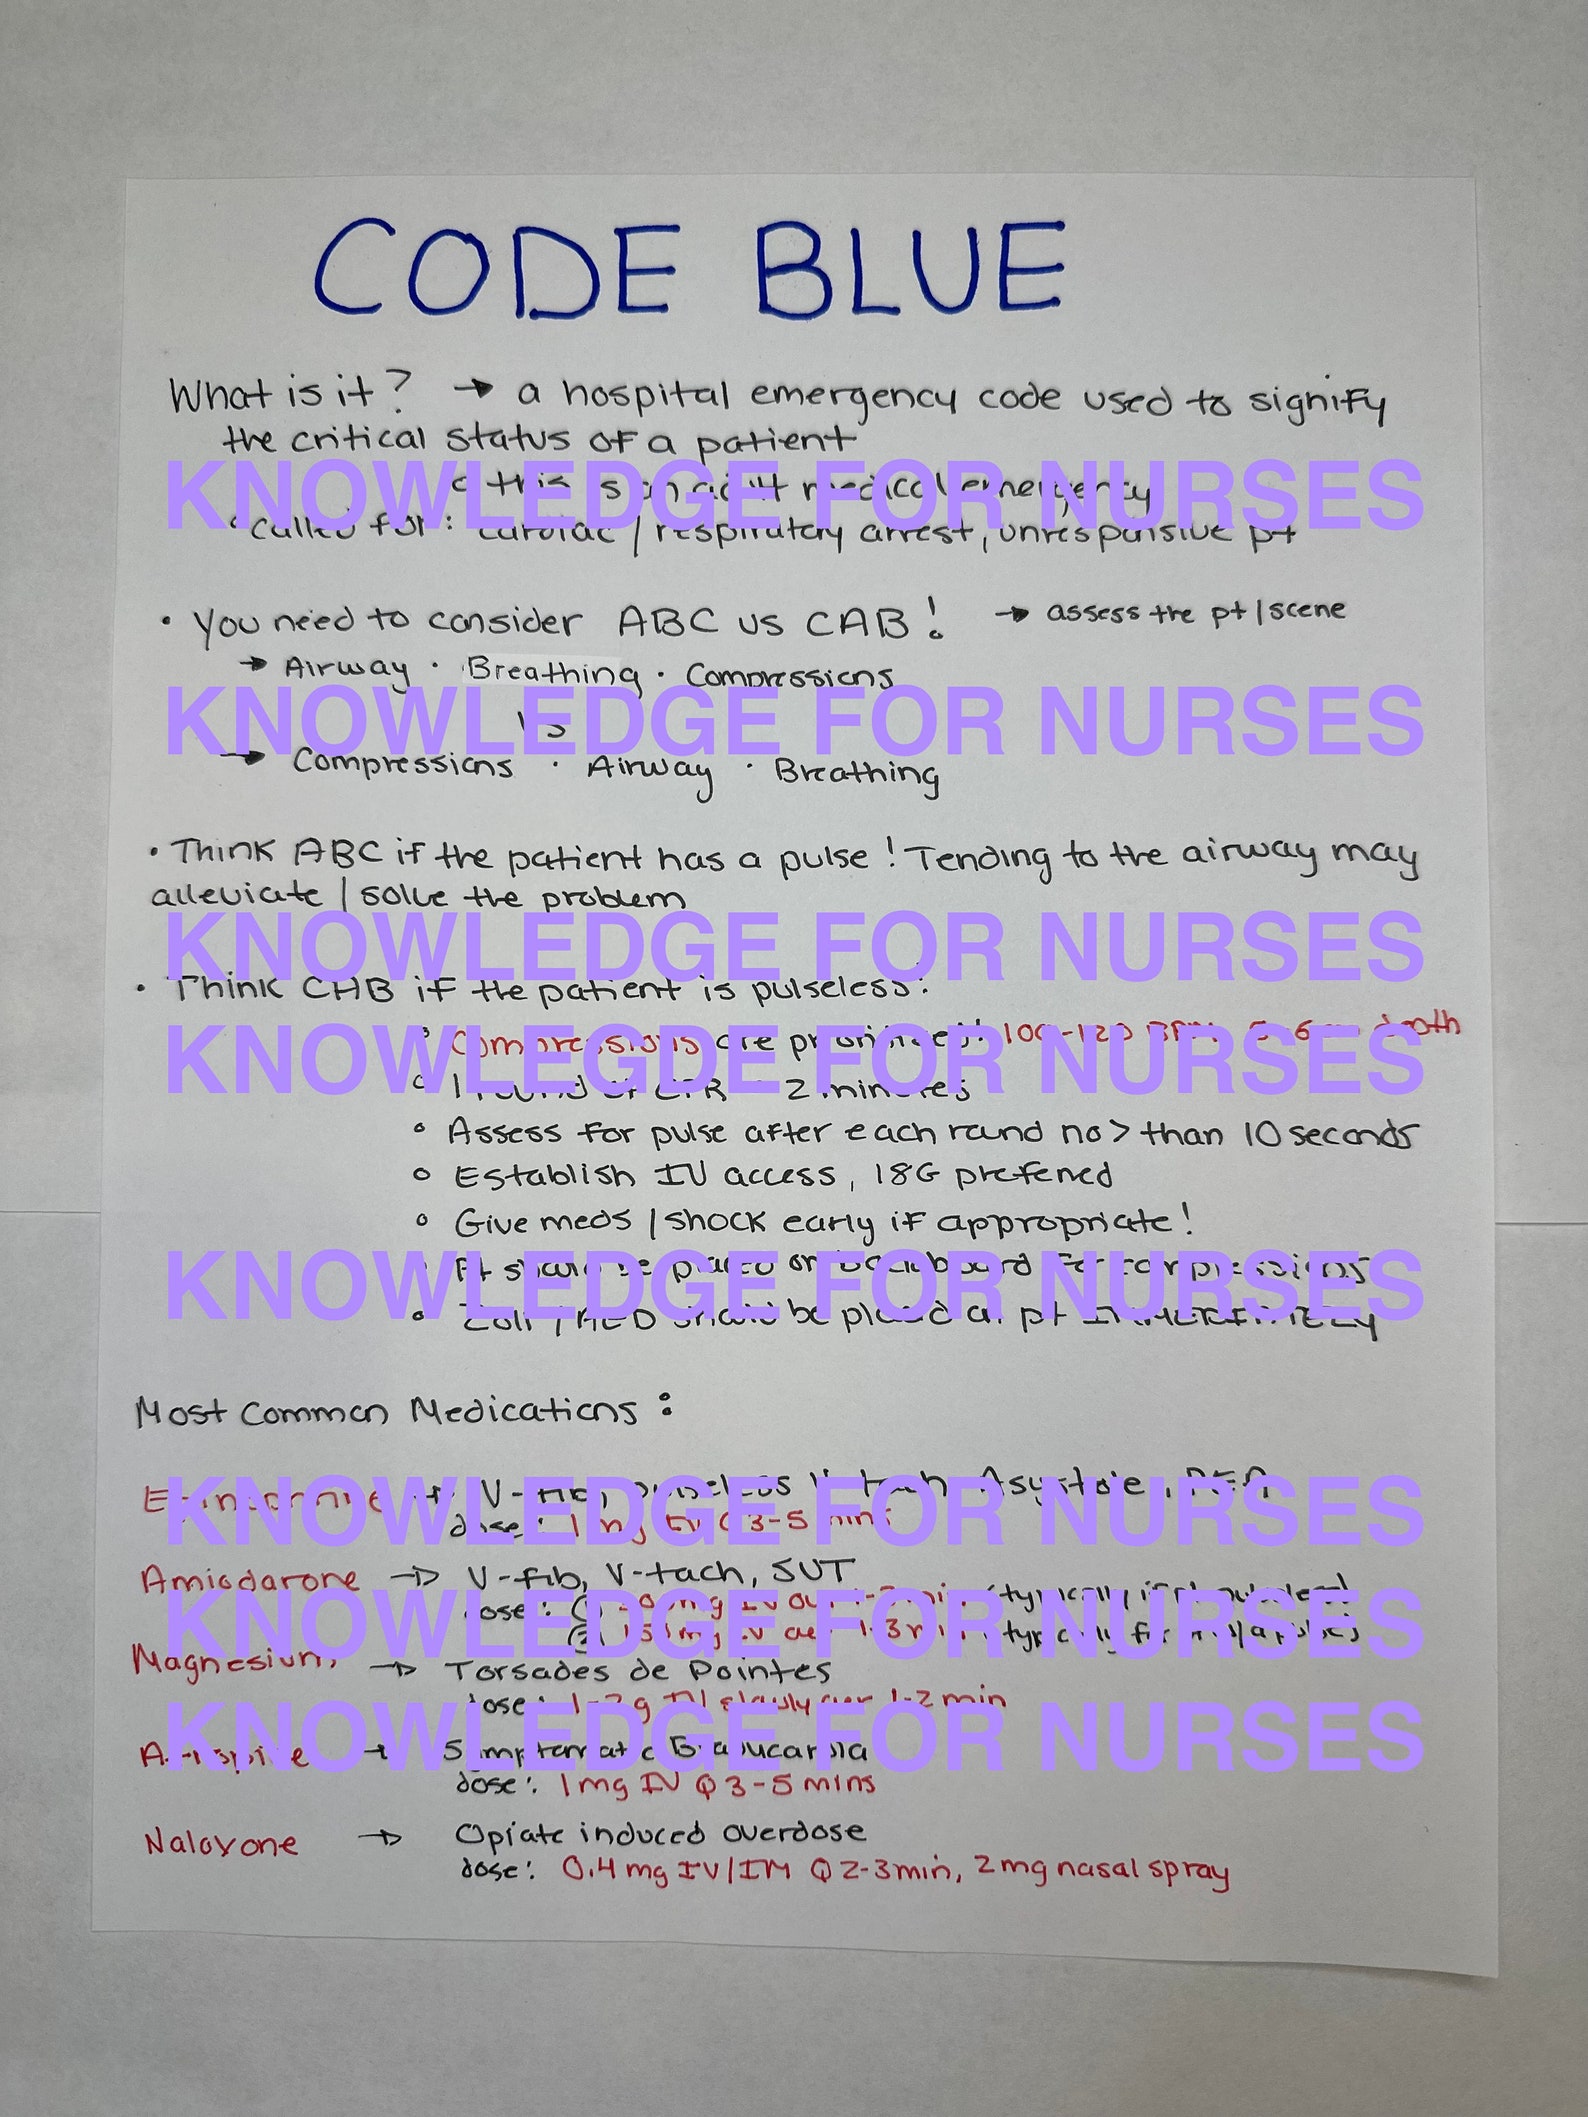 CODE BLUE
What is it? → a hospital emergency code used to signify
the critical status of a patient
KNOWLEDGE FOR NURSES
this is an adult medical emergency
called for: cardiac / respiratory arrest, unresponsive pt
• You need to consider ABC vs CAB! → assess the pt / scene
→ Airway · Breathing · Compressions
KNOWLEDGE FOR NURSES
vs
→ Compressions · Airway · Breathing
• Think ABC if the patient has a pulse! Tending to the airway may
alleviate / solve the problem
KNOWLEDGE FOR NURSES
• Think CAB if the patient is pulseless!
° Compressions are prioritized! 100-120 BPM, 5-6cm depth
KNOWLEGDE FOR NURSES
° 1 round of CPR = 2 minutes
° Assess for pulse after each round no > than 10 seconds
° Establish IV access, 18G preferred
° Give meds / shock early if appropriate!
KNOWLEDGE FOR NURSES
° Pt should be placed on backboard for compressions
° Zoll / AED should be placed on pt IMMEDIATELY
Most Common Medications:
KNOWLEDGE FOR NURSES
Epinephrine → V-fib, pulseless V-tach, Asystole, PEA
dose: 1mg IV Q 3-5 mins
Amiodarone → V-fib, V-tach, SVT
KNOWLEDGE FOR NURSES
dose: ① mg IV (typically if pt pulseless)
② 150mg IV 1-3 min (typically for
Magnesium → Torsades de Pointes
dose: 1-2g IV slowly over 1-2 min
KNOWLEDGE FOR NURSES
Atropine → Symptomatic Bradycardia
dose: 1mg IV Q 3-5 mins
Naloxone → Opiate induced overdose
dose: 0.4mg IV/IM Q 2-3min, 2mg nasal spray